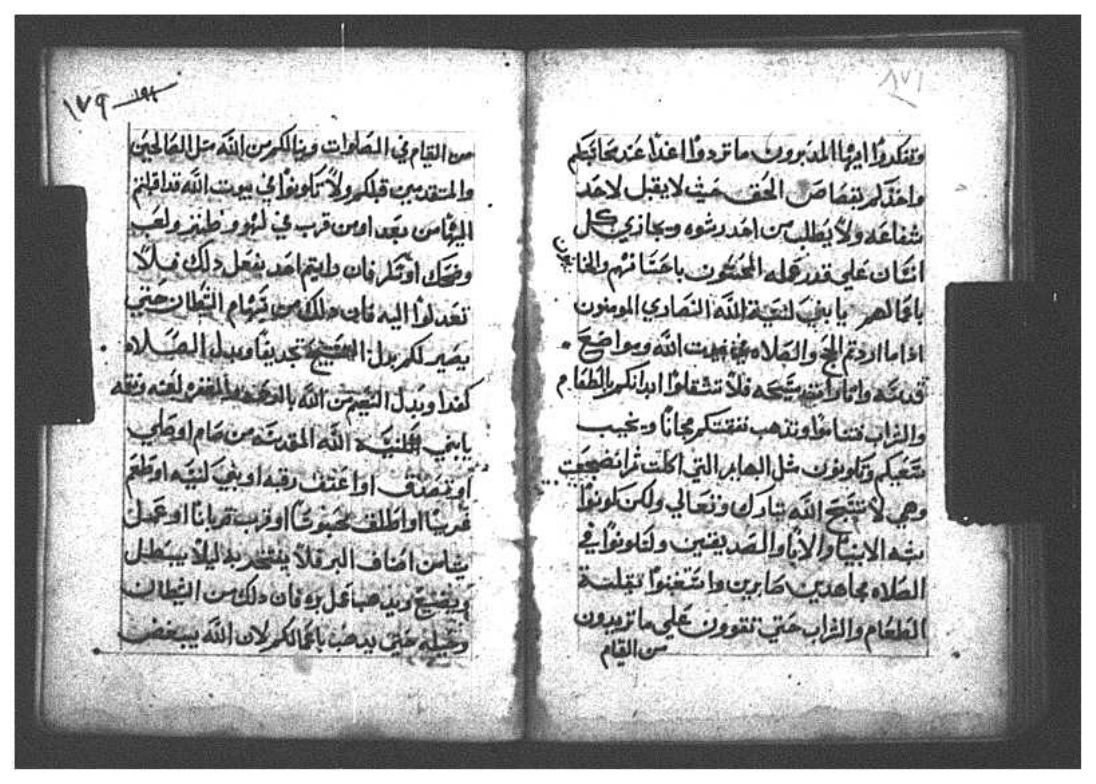 ١٧٦
وتفكروا ايها المدبرون ما تردوا اغدا عند محاتبتكم
واخذكم بقصاص الحق حيث لا يقبل لاحد
شفاعه ولا يطلب من احد رشوه ويجازي كل
انسان علي قدر عمله المحسنون باحسانهم والخا
طيون
باعمالهم يا بني لنيسة الله النصاري المومنون
اذا ما اردتم الحج والصلاه في بيت الله ومواضع
قدسه واثار المسيحه فلا تتقلوا ابدانكم بالطعام
والشراب فتناموا وتذهب نفقتكم مجانا ويخيب
تعبكم وتكونون مثل البهايم التي اكلت ثم اضجعت
وهي لا تسبح الله تبارك وتعالي ولكن كونوا
شبه الانبيا والابا والصديقين ولتكونوا في
الصلاه مجاهدين صابرين واستعينوا بقلة
الطعام والشراب حتي تقوون علي ما تريدون
من القيام
١٧٩
من القيام في الصلوات وينالكم من الله مثل الصالحين
والمتقدمين قبلكم ولا تكونوا في بيوت الله قد اقبلتم
اليها من بعد او من قرب في لهو وطنز ولعب
وضحك او سكر فان رايتم احد يفعل ذلك فلا
تعدلوا اليه فان ذلك من سهام الشيطان حتي
يصير لكم بدل التسبيح تجديفا وبدل الصلاه
كفدا وبدل النعيم من الله بالرحمه والمغفره لعنه ونقمه
يا بني كنيسة الله المقدسه من صام او صلي
او تصدق او اعتق رقبه او بني كنيسه او اطعم
غريبا او اطلق محبوسا او قرب قربانا او عمل
شيا من اصناف البر فلا يفتخر به ليلا يبطل
ويضيع ويذهب اعمل بره فان ذلك من الشيطان
وحيله حتي يذهب باعمالكم لان الله يبغض